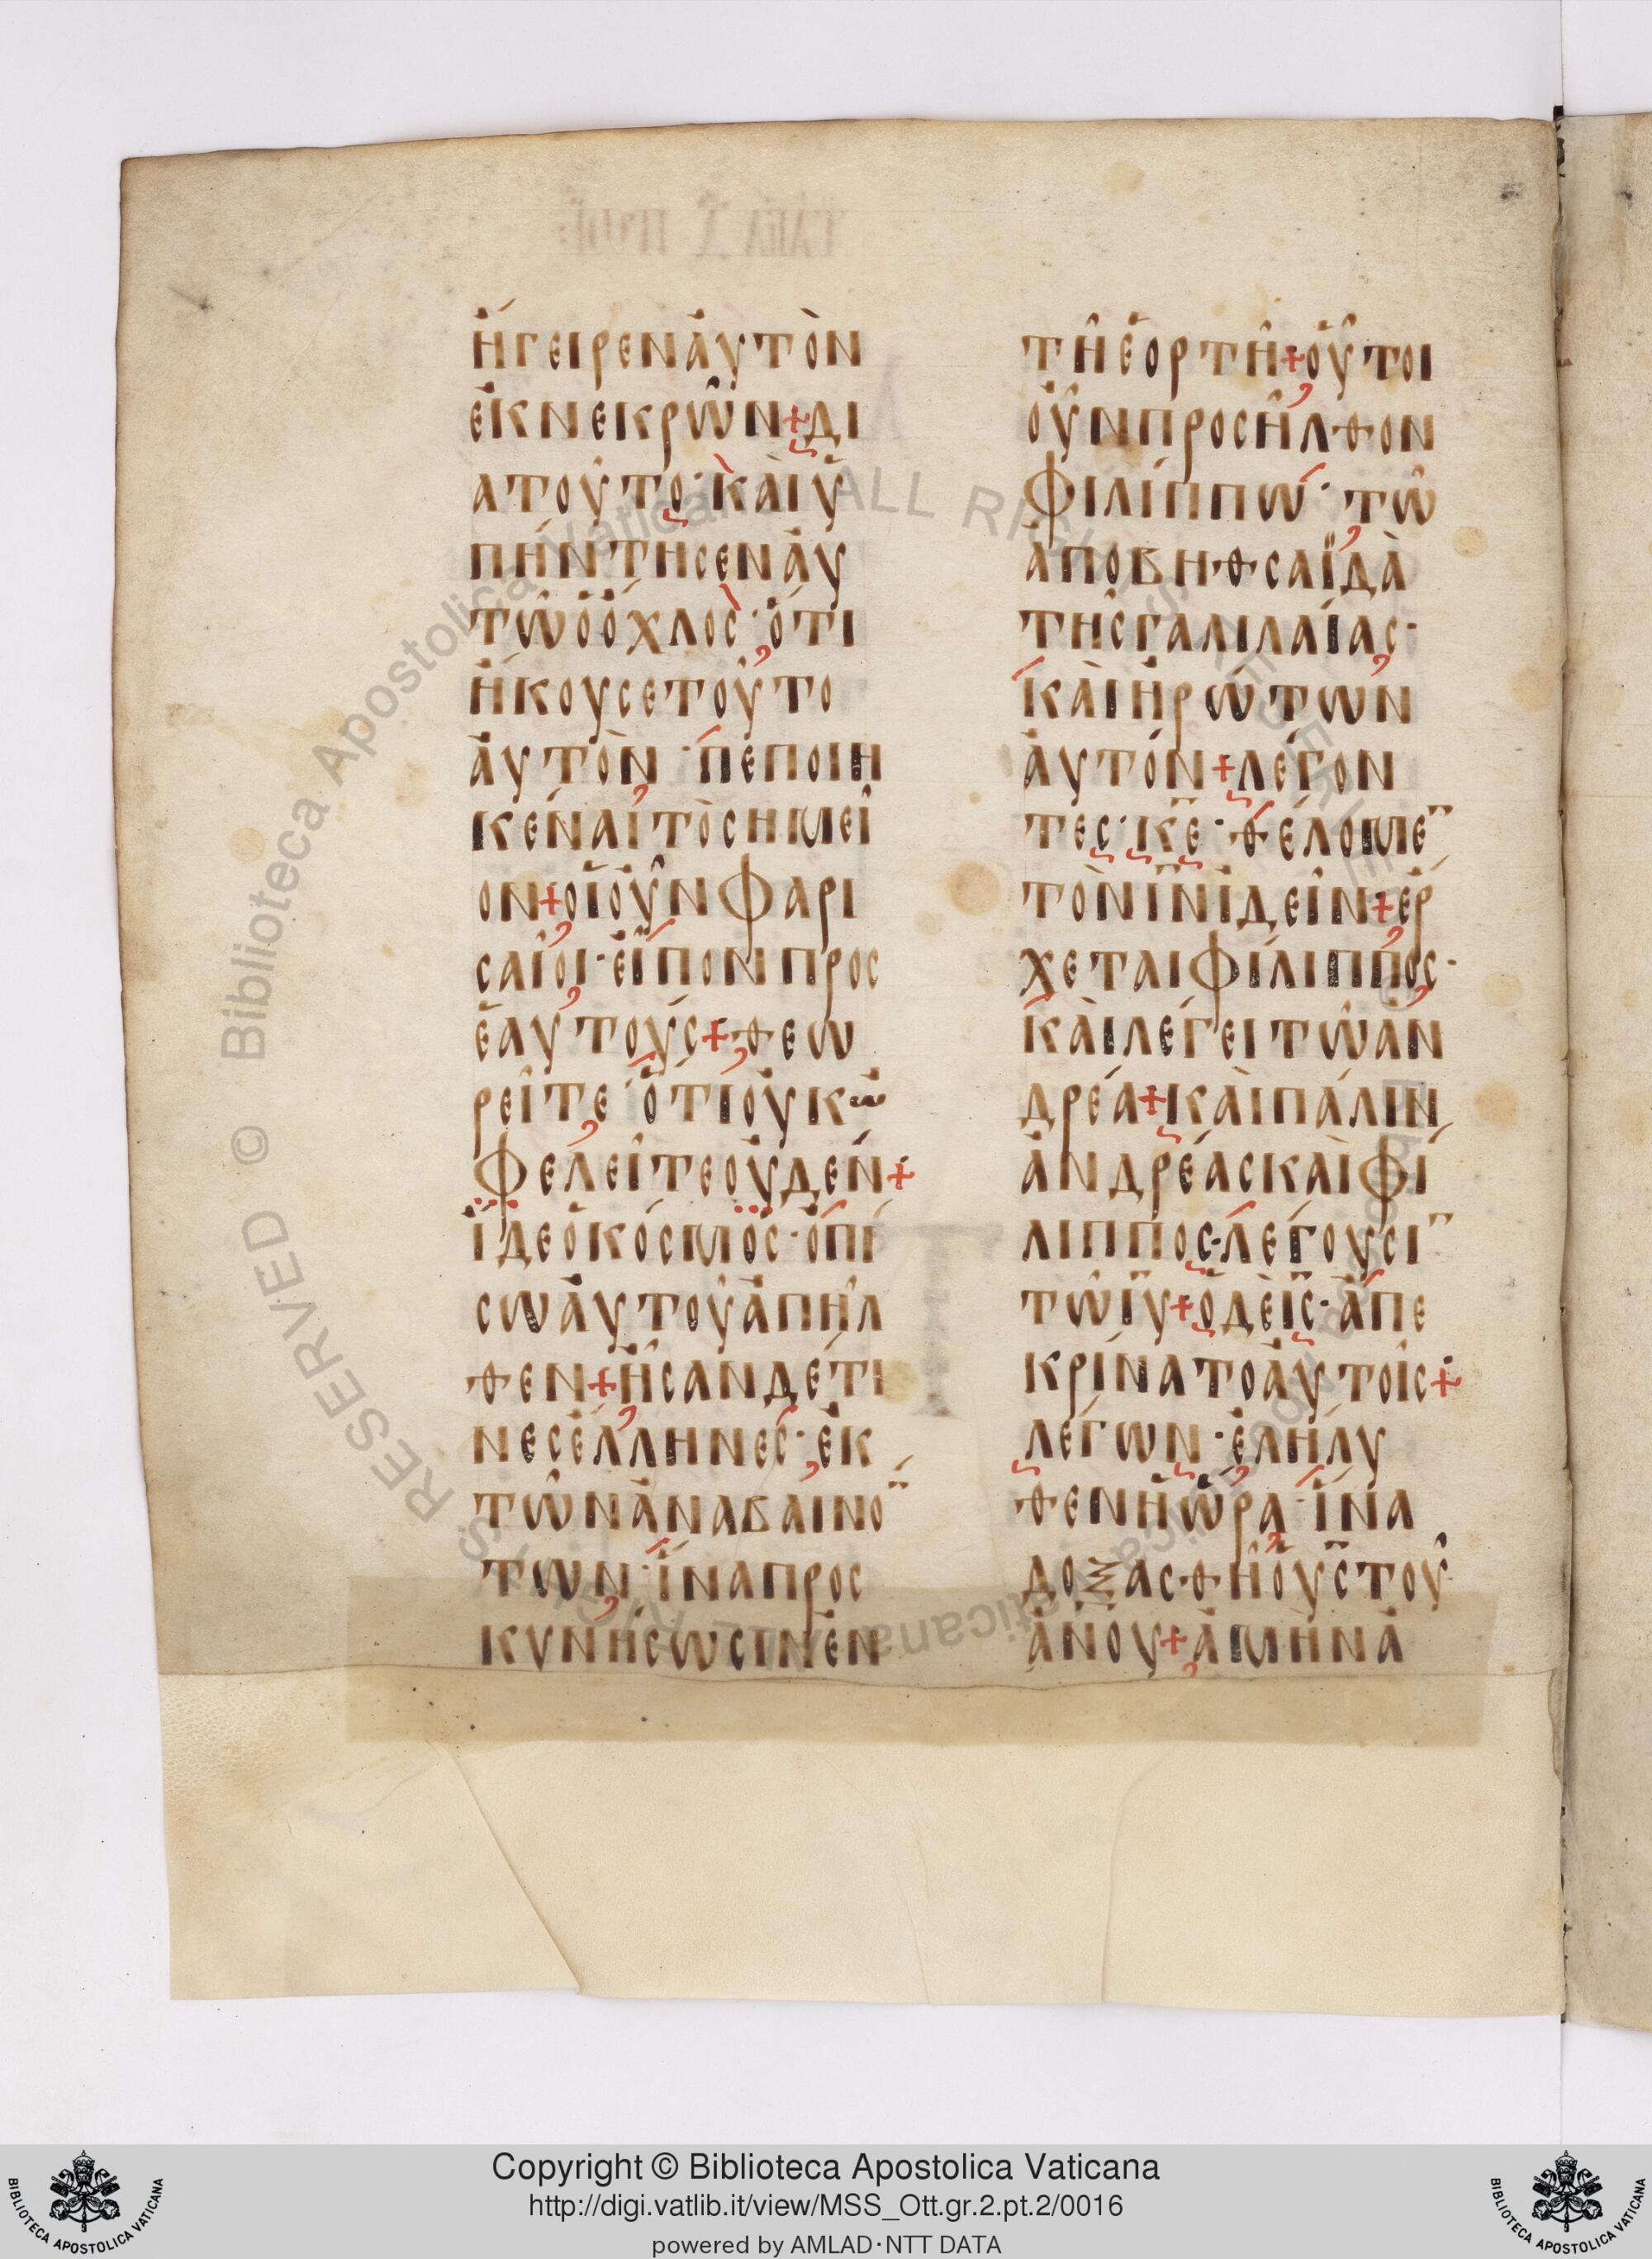 ἤγειρεν ἀυτὸν
ἐκ νεκρῶν + δι
ατοῦτο · κὰι ὑ
πήντησεν ἀυ
τῶ ὁ ὄχλος · ὅτι
ἤκουσε τοῦτο
ἀυτὸν · πεποιη
κέναι τὸ σημεῖ
ον + οἱ οὖν Φαρι
σαῖοι · εἶπον προς
ἑαυτούς + θεω
ρεῖτε · ὅτι οὐκ ὠ
φελεῖτε οὐδέν +
ἴδε ὁ κόσμος · ὀπί
σω ἀυτοῦ ἀπῆλ
θεν + ἦσαν δέ τι
νες ἑλληνες · ἐκ
τῶν ἀναβαινό̈
των · ἵνα προς
κυνήσωσιν ἐν
τῆ ἑορτῆ + οὗτοι
οὖν προσῆλθον
Φιλίππω · τῶ
ἀπο βηθσαϊδὰ
τῆς γαλιλαίας ·
κὰι ἠρώτων
ἀυτόν + λέγον
τες · κ̅ε̅ · θέλομε̈
τὸν ι̅ν̅ ἰδεῖν + έρ
χεται Φίλιππος ·
κὰι λέγει τῶ ἀν
δρέα + κὰι πάλιν
ἀνδρέας κὰι φί
λιππος · λέγουσῖ
τῶ ι̅υ̅ + ὁ δὲ ι̅ς̅ · ἀπε
κρίνατο ἀυτοῖς +
λέγων · ἐλήλυ
θεν ἡ ὥρα · ἵνα
δοξασθῆ ὁ υ̅ς̅ τοῦ
ἀ̅ν̅ο̅υ̅ + ἀμὴν ἀ
Copyright © Biblioteca Apostolica Vaticana
http://digi.vatlib.it/view/MSS_Ott.gr.2.pt.2/0016
powered by AMLAD·NTT DATA
BIBLIOTECA APOSTOLICA VATICANA
BIBLIOTECA APOSTOLICA VATICANA